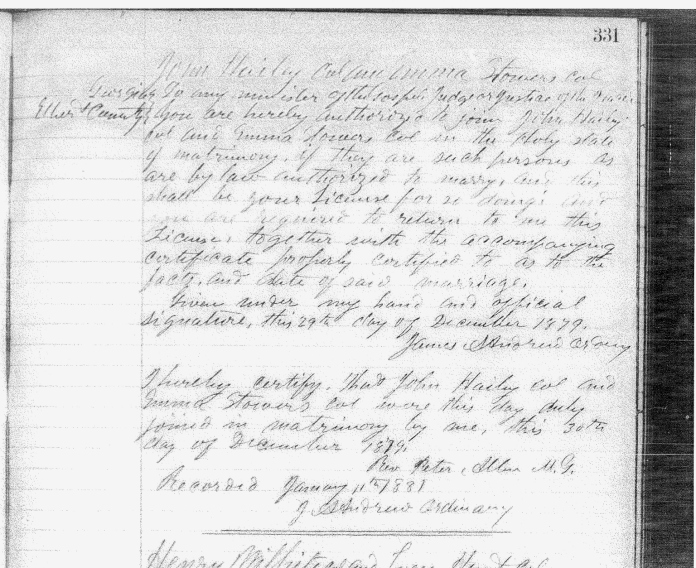 331
John Hailey col and Emma Stowers col
Georgia To any minister of the Gospel Judge or Justice of the Peace
Elbert County You are hereby authorized to join John Hailey
col and Emma Stowers col in the Holy state
of matrimony. if they are such persons as
are by law authorized to marry, and this
shall be your License for so doing. and
you are required to return to me this
License, together with the accompanying
certificate properly certified to as to the
fact, and date of said marriage.
Given under my hand and official
signature, this 29th day of December 1879.
James Andrew Ordny
I hereby certify, that John Hailey col and
Emma Stowers col were this day duly
joined in matrimony by me, this 30th
day of December 1879.
Rev. Peter Allen M.G.
Recorded January 11th 1881
J Andrew Ordinary
Henry and col